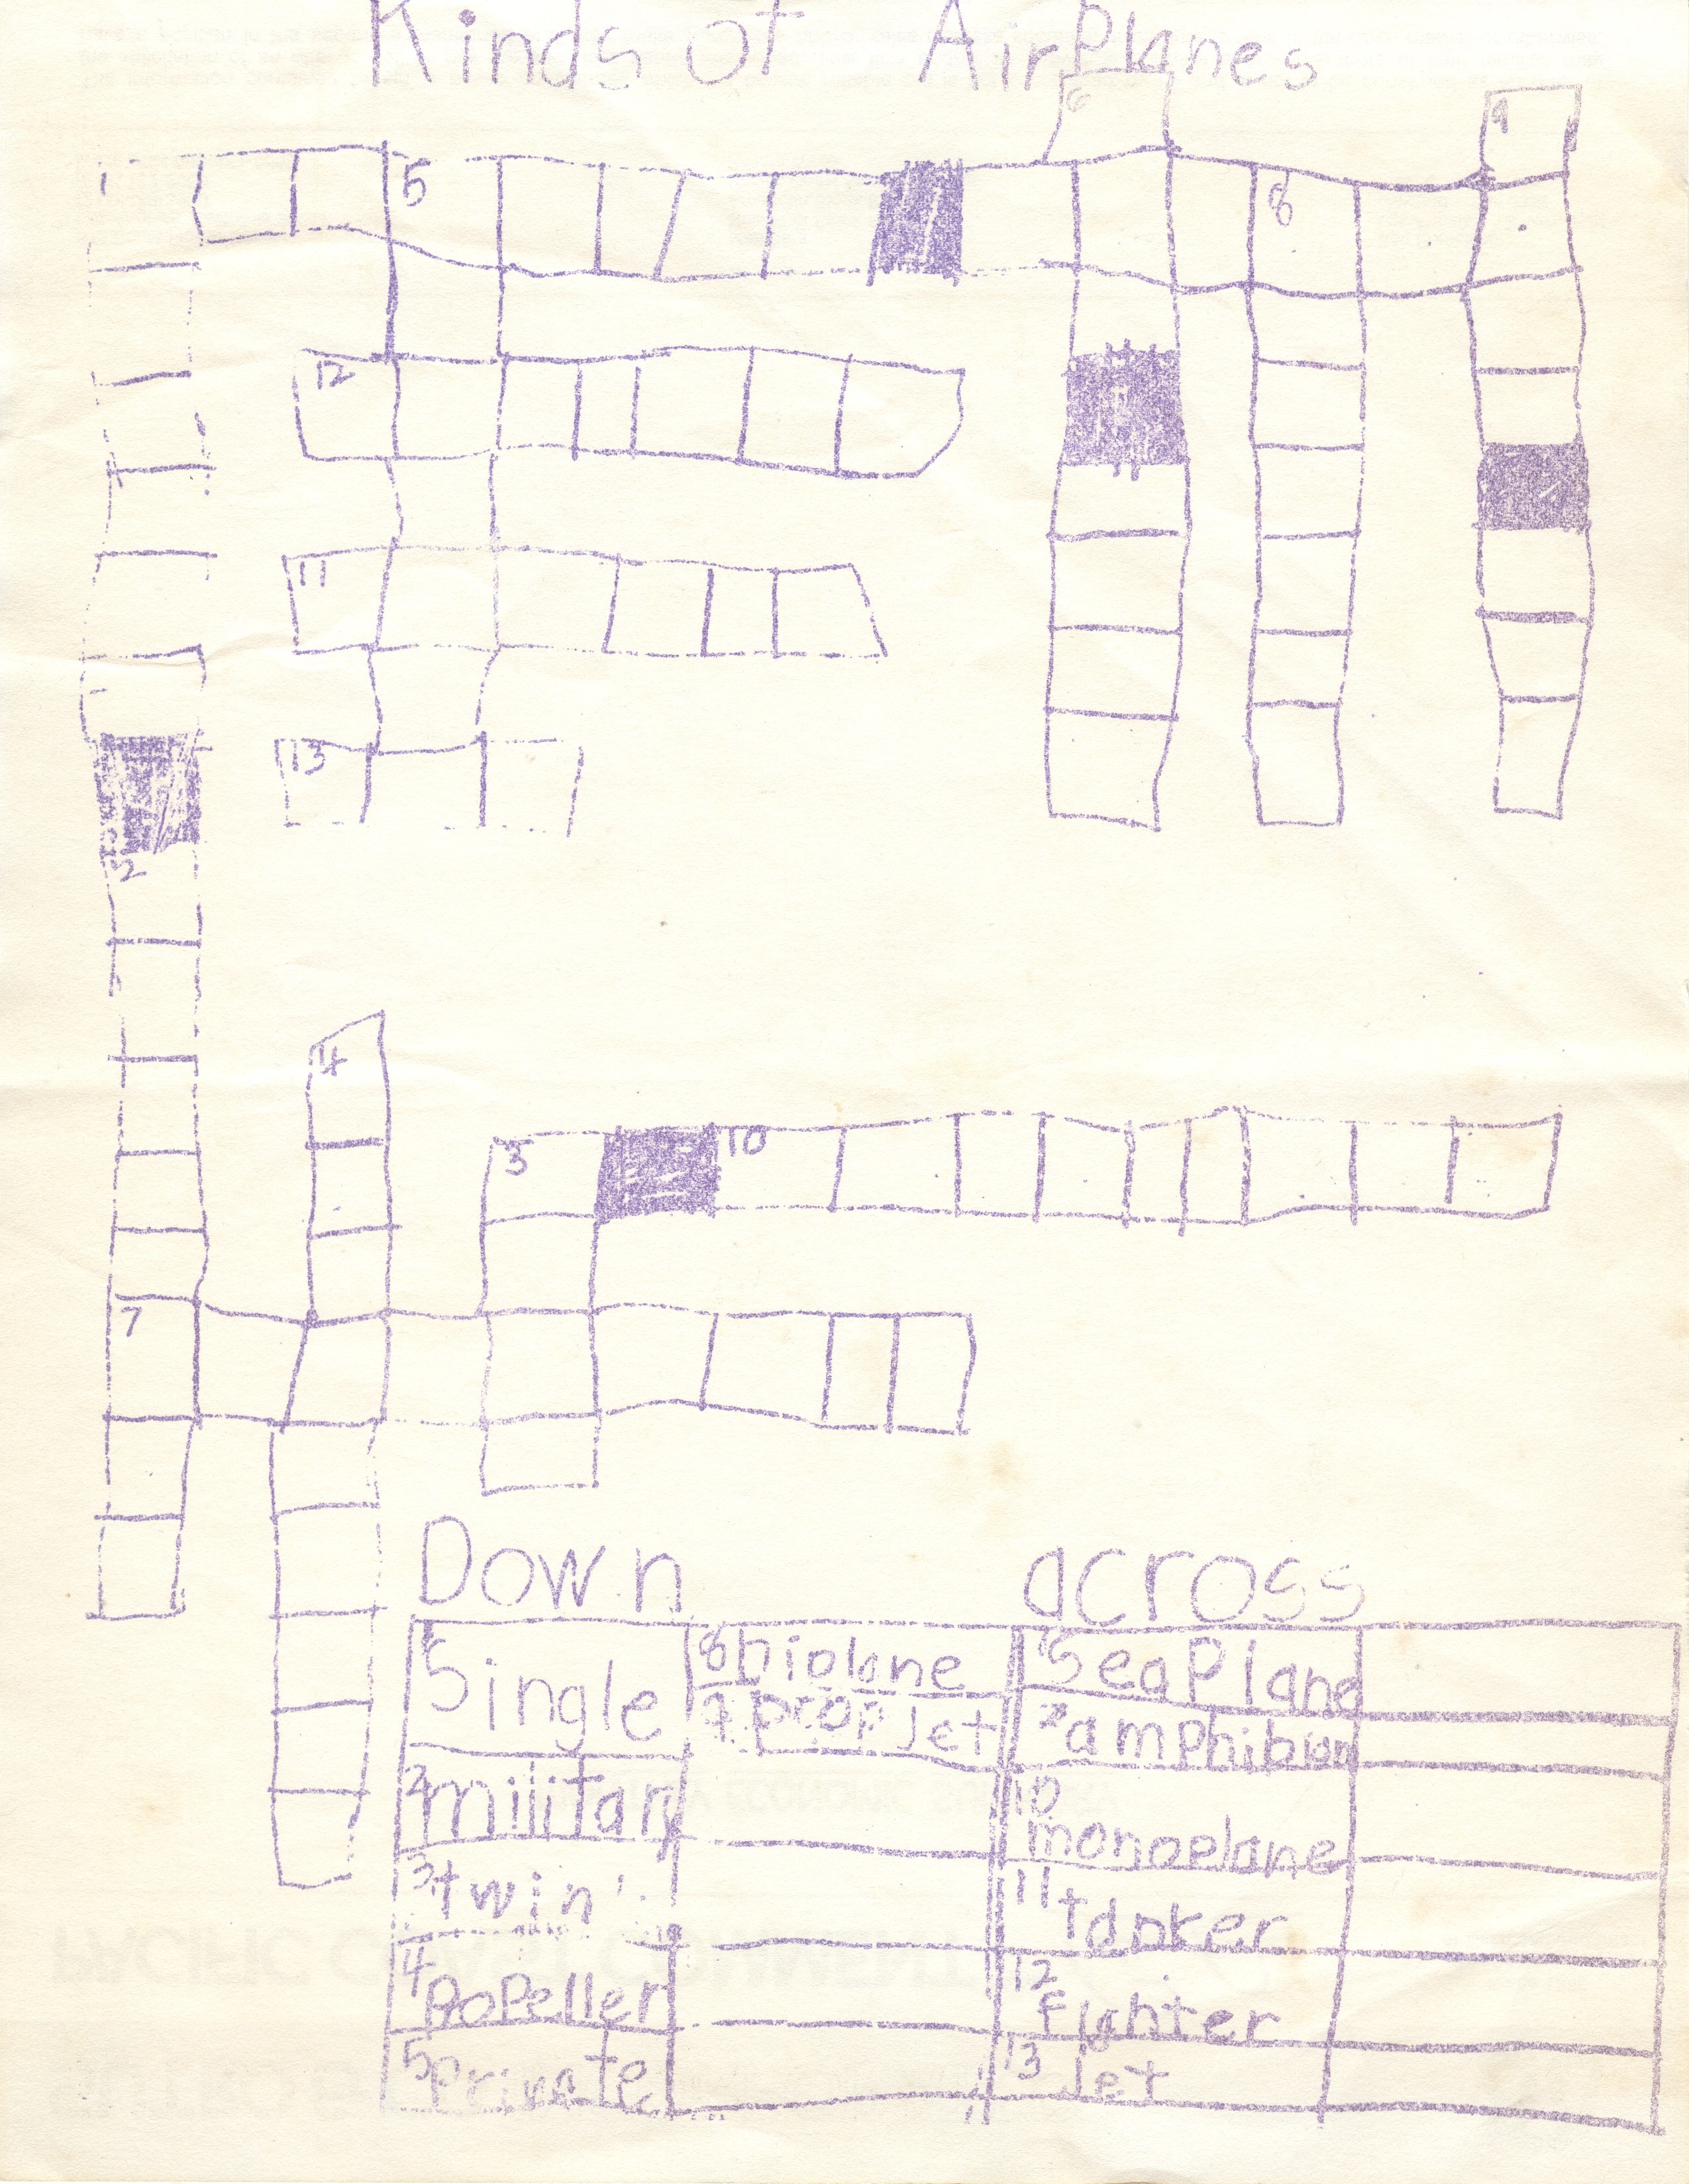 Kinds of AirPlanes
6
9
1
5
8
12
11
13
2
4
3
10
7
Down
across
1 Single
8 biplane
1 SeaPlane
9 propJet
7 amphibian
2 military
10 monoplane
3 twin
11 tanker
4 PoPeller
12 fighter
5 Private
13 Jet